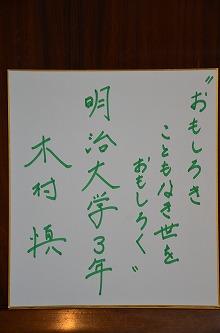 "おもしろき
こともなき世を
おもしろく"
明治大学3年
木村慎